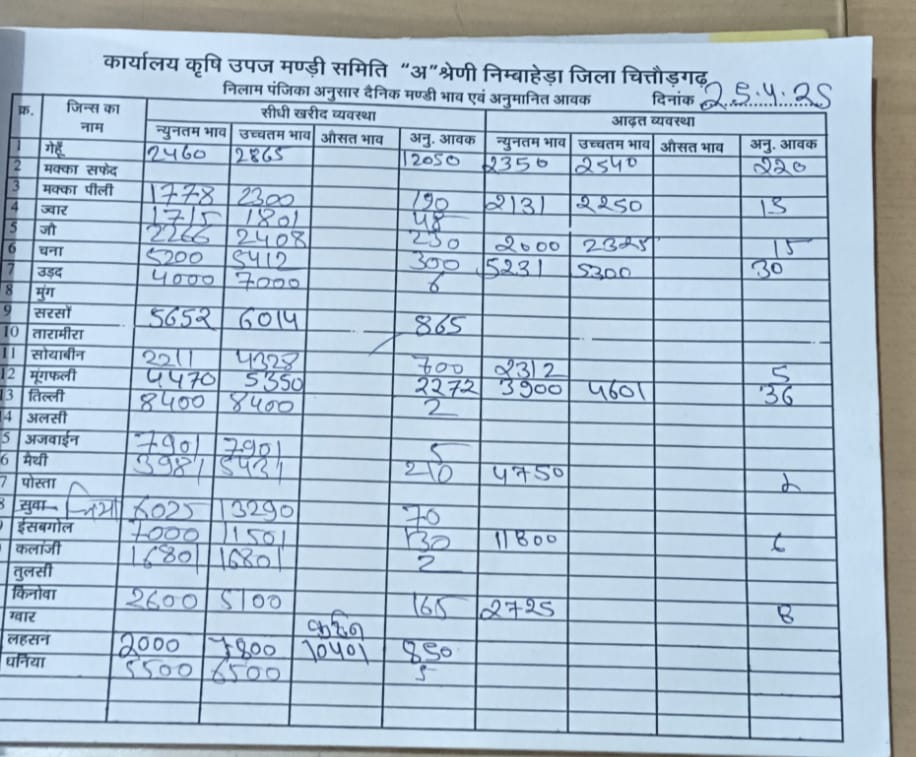 कार्यालय कृषि उपज मण्ड़ी समिति "अ"श्रेणी निम्बाहेड़ा जिला चित्तौड़गढ़
नीलाम पंजिका अनुसार दैनिक मण्डी भाव एवं अनुमानित आवक दिनांक 25.4.25
क्र. जिन्स का नाम सीधी खरीद व्यवस्था आढ़त व्यवस्था
न्युनतम भाव उच्चतम भाव औसत भाव अनु. आवक न्युनतम भाव उच्चतम भाव औसत भाव अनु. आवक
1 गेहूँ 2460 2865 12050 2350 2540 220
2 मक्का सफेद
3 मक्का पीली 1778 2300 190 2131 2250 15
4 ज्वार 1715 1801 48
5 जौ 2266 2408 230 2000 2325 15
6 चना 5200 5412 300 5231 5300 30
7 उड़द 4000 7000 8
8 मुंग
9 सरसों 5652 6014 865
10 तारामीरा
11 सोयाबीन 2211 4328 700 2312 5
12 मूंगफली 4470 5350 2272 3900 4601 36
13 तिल्ली 8400 8400 2
4 अलसी
5 अजवाईन 7901 7901 5
6 मैथी 3981 5431 210 4750 2
7 पोस्ता
8 सुवा 6025 13290 70
ईसबगोल 7000 11501 130 11800 6
कलांजी 16801 16801 2
तुलसी
किनोवा 2600 5100 165 2725 8
ग्वार
लहसन 2000 7800 10401 850
धनिया 5500 6500 5